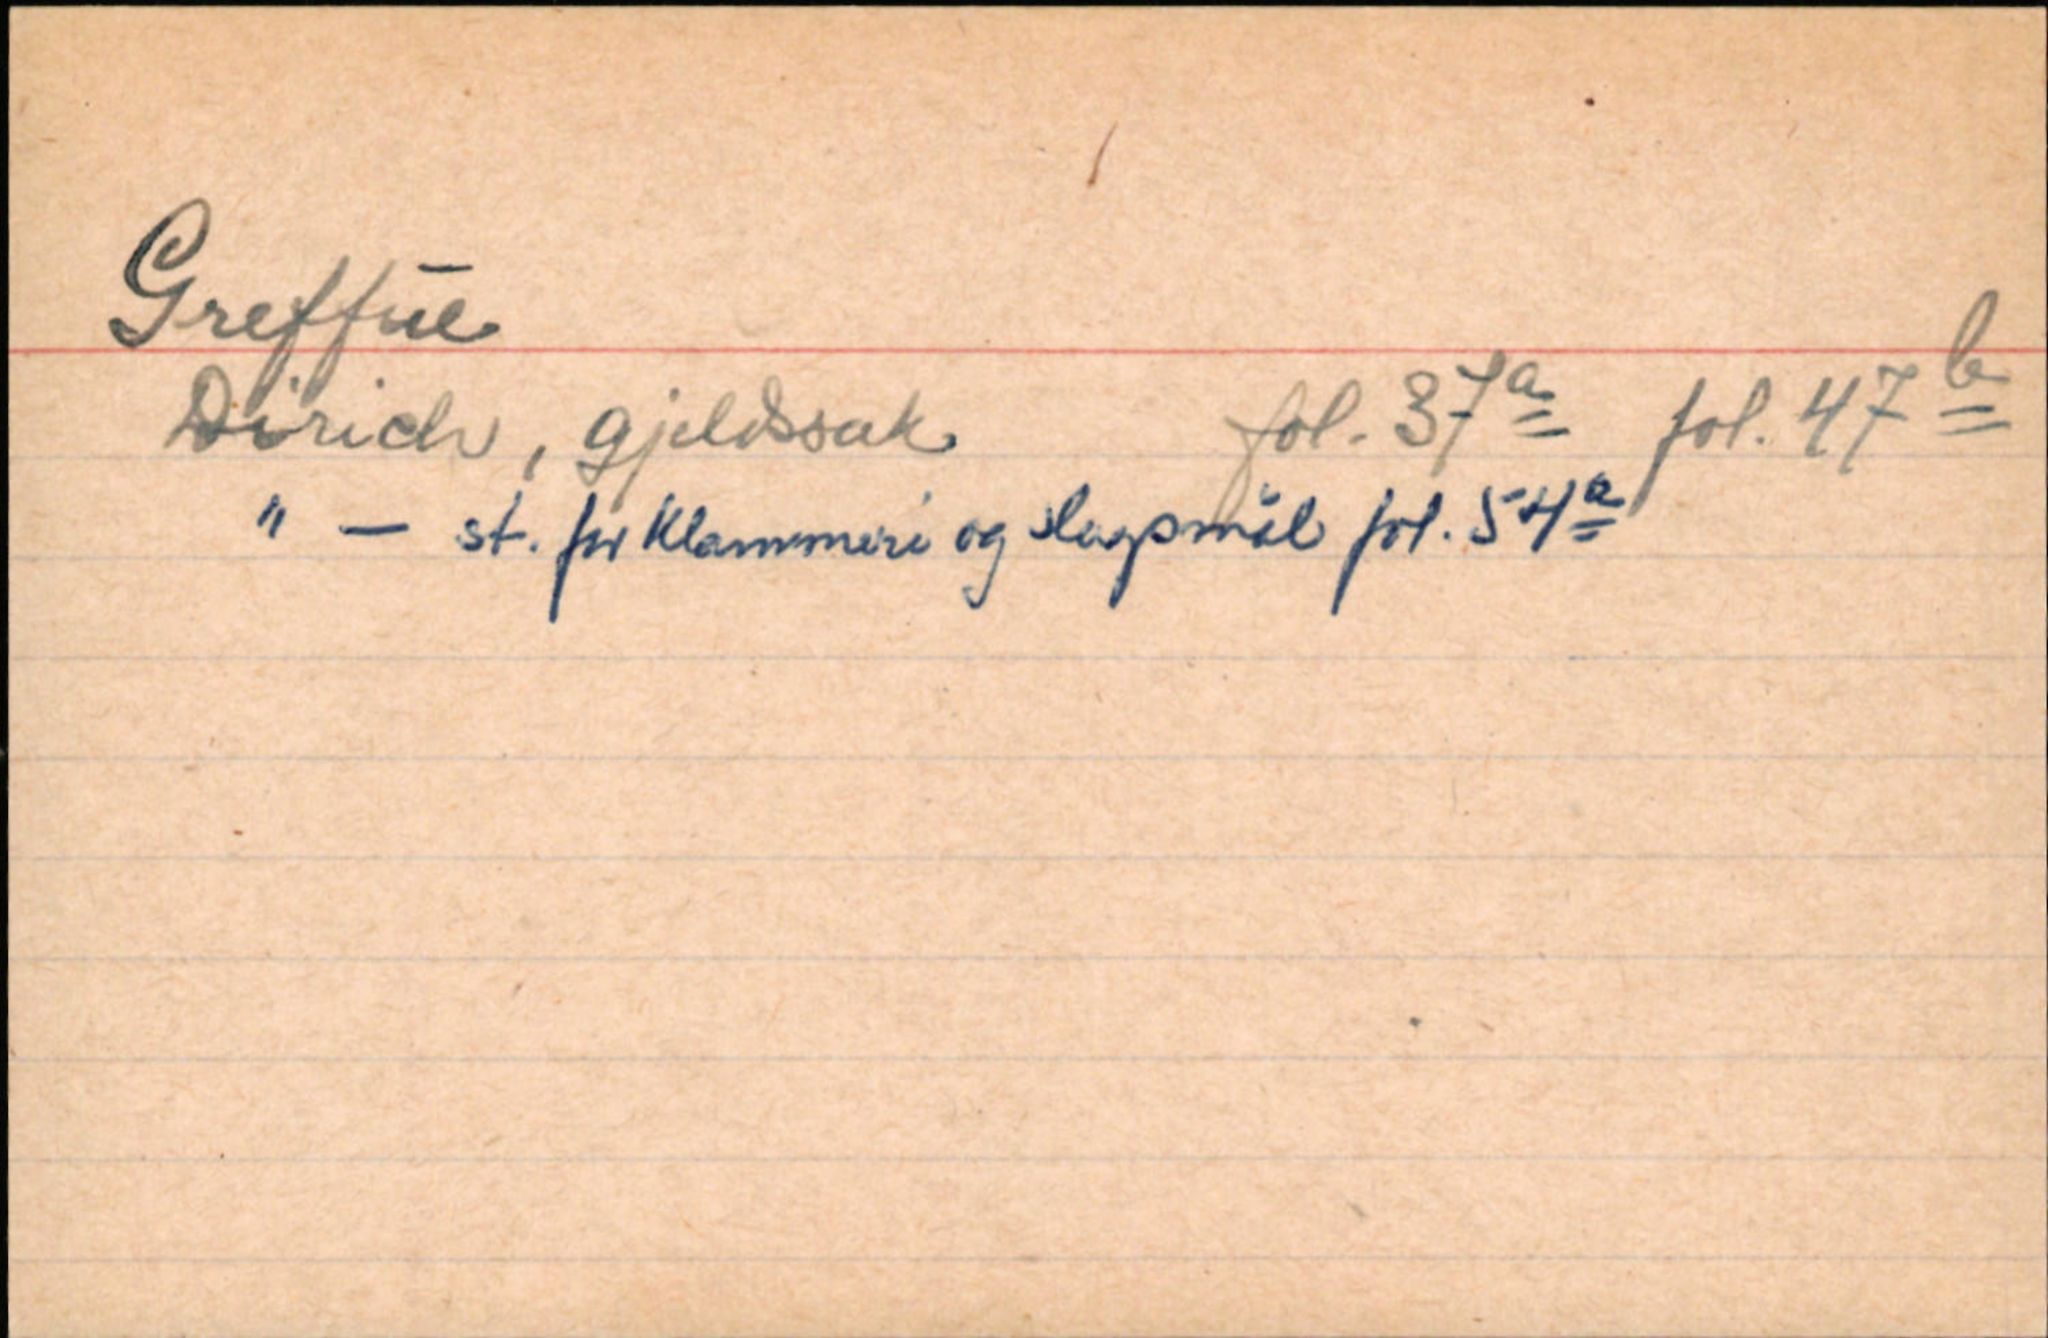 Greffue
Dirich, gjeldssak fol. 37a fol. 47b
" — st. for Klammeri og slagsmål fol. 54a